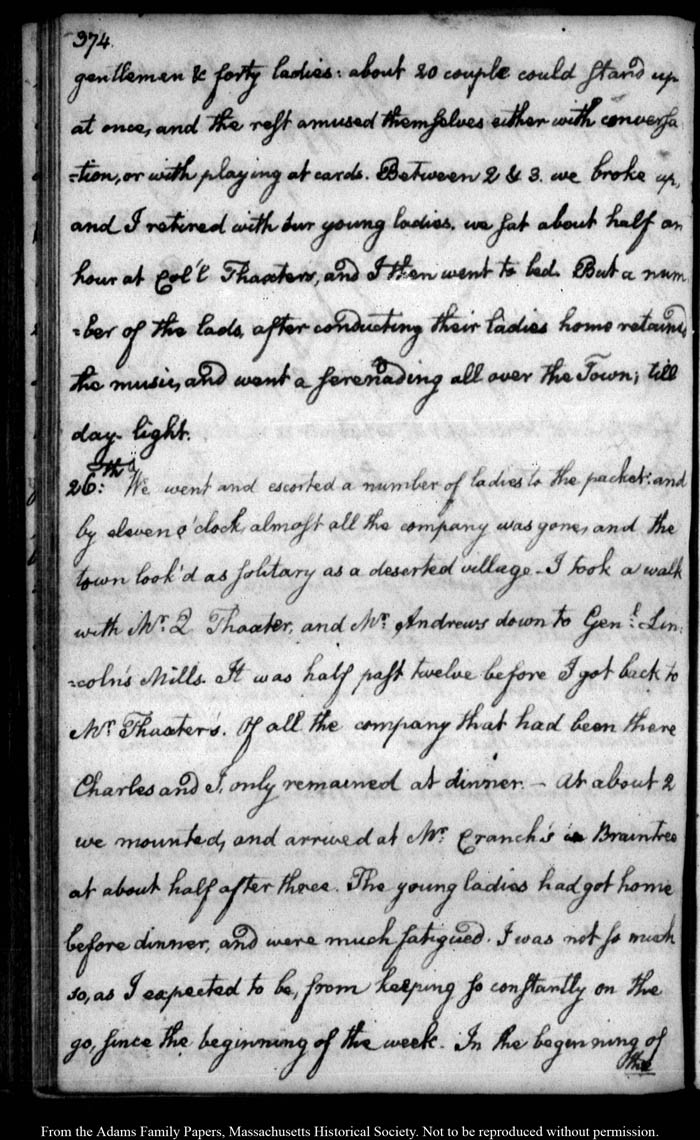 374.
gentlemen & forty ladies: about 20 couple could stand up
at once, and the rest amused themselves either with conversa
=tion, or with playing at cards. Between 2 & 3. we broke up,
and I retired with our young ladies. we sat about half an
hour at Col'l Thaxters, and I then went to bed. But a num
=ber of the lads, after conducting their ladies home retained,
the music, and went a serenading all over the Town; till
day-light.
26: th
We went and escorted a number of ladies to the packet: and
by eleven o'clock, almost all the company was gone, and the
town look'd as solitary as a deserted village. I took a walk
with Mr. Q Thaxter, and Mr. Andrews down to Genl. Lin:
=coln's Mills. It was half past twelve before I got back to
Mr Thaxter's. Of all the company that had been there
Charles and I, only remained at dinner. — At about 2
we mounted, and arrived at Mr. Cranch's in Braintree
at about half after three. The young ladies had got home
before dinner, and were much fatigued. I was not so much
so, as I expected to be, from keeping so constantly on the
go, since the beginning of the week. In the beginning of
the
From the Adams Family Papers, Massachusetts Historical Society. Not to be reproduced without permission.